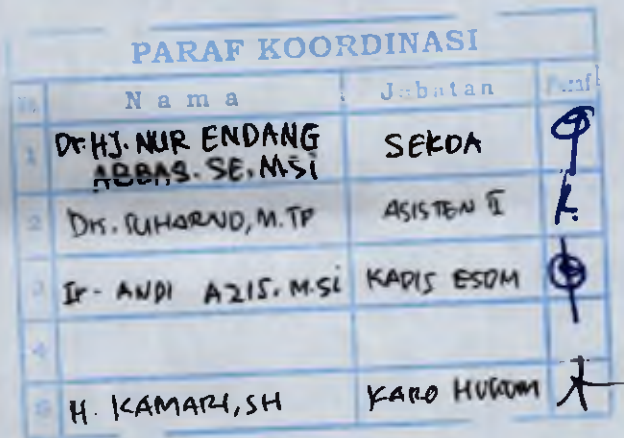 PARAF KOORDINASI
No Nama Jabatan Paraf
1 Dr. HJ. NUR ENDANG SEKDA
ABBAS. SE, MSi
2 DR. SUHARNO, M.TP ASISTEN II
3 Ir- ANDI AZIS. M.Si KADIS ESDM
4
5 H. KAMARI, SH KARO HUKUM